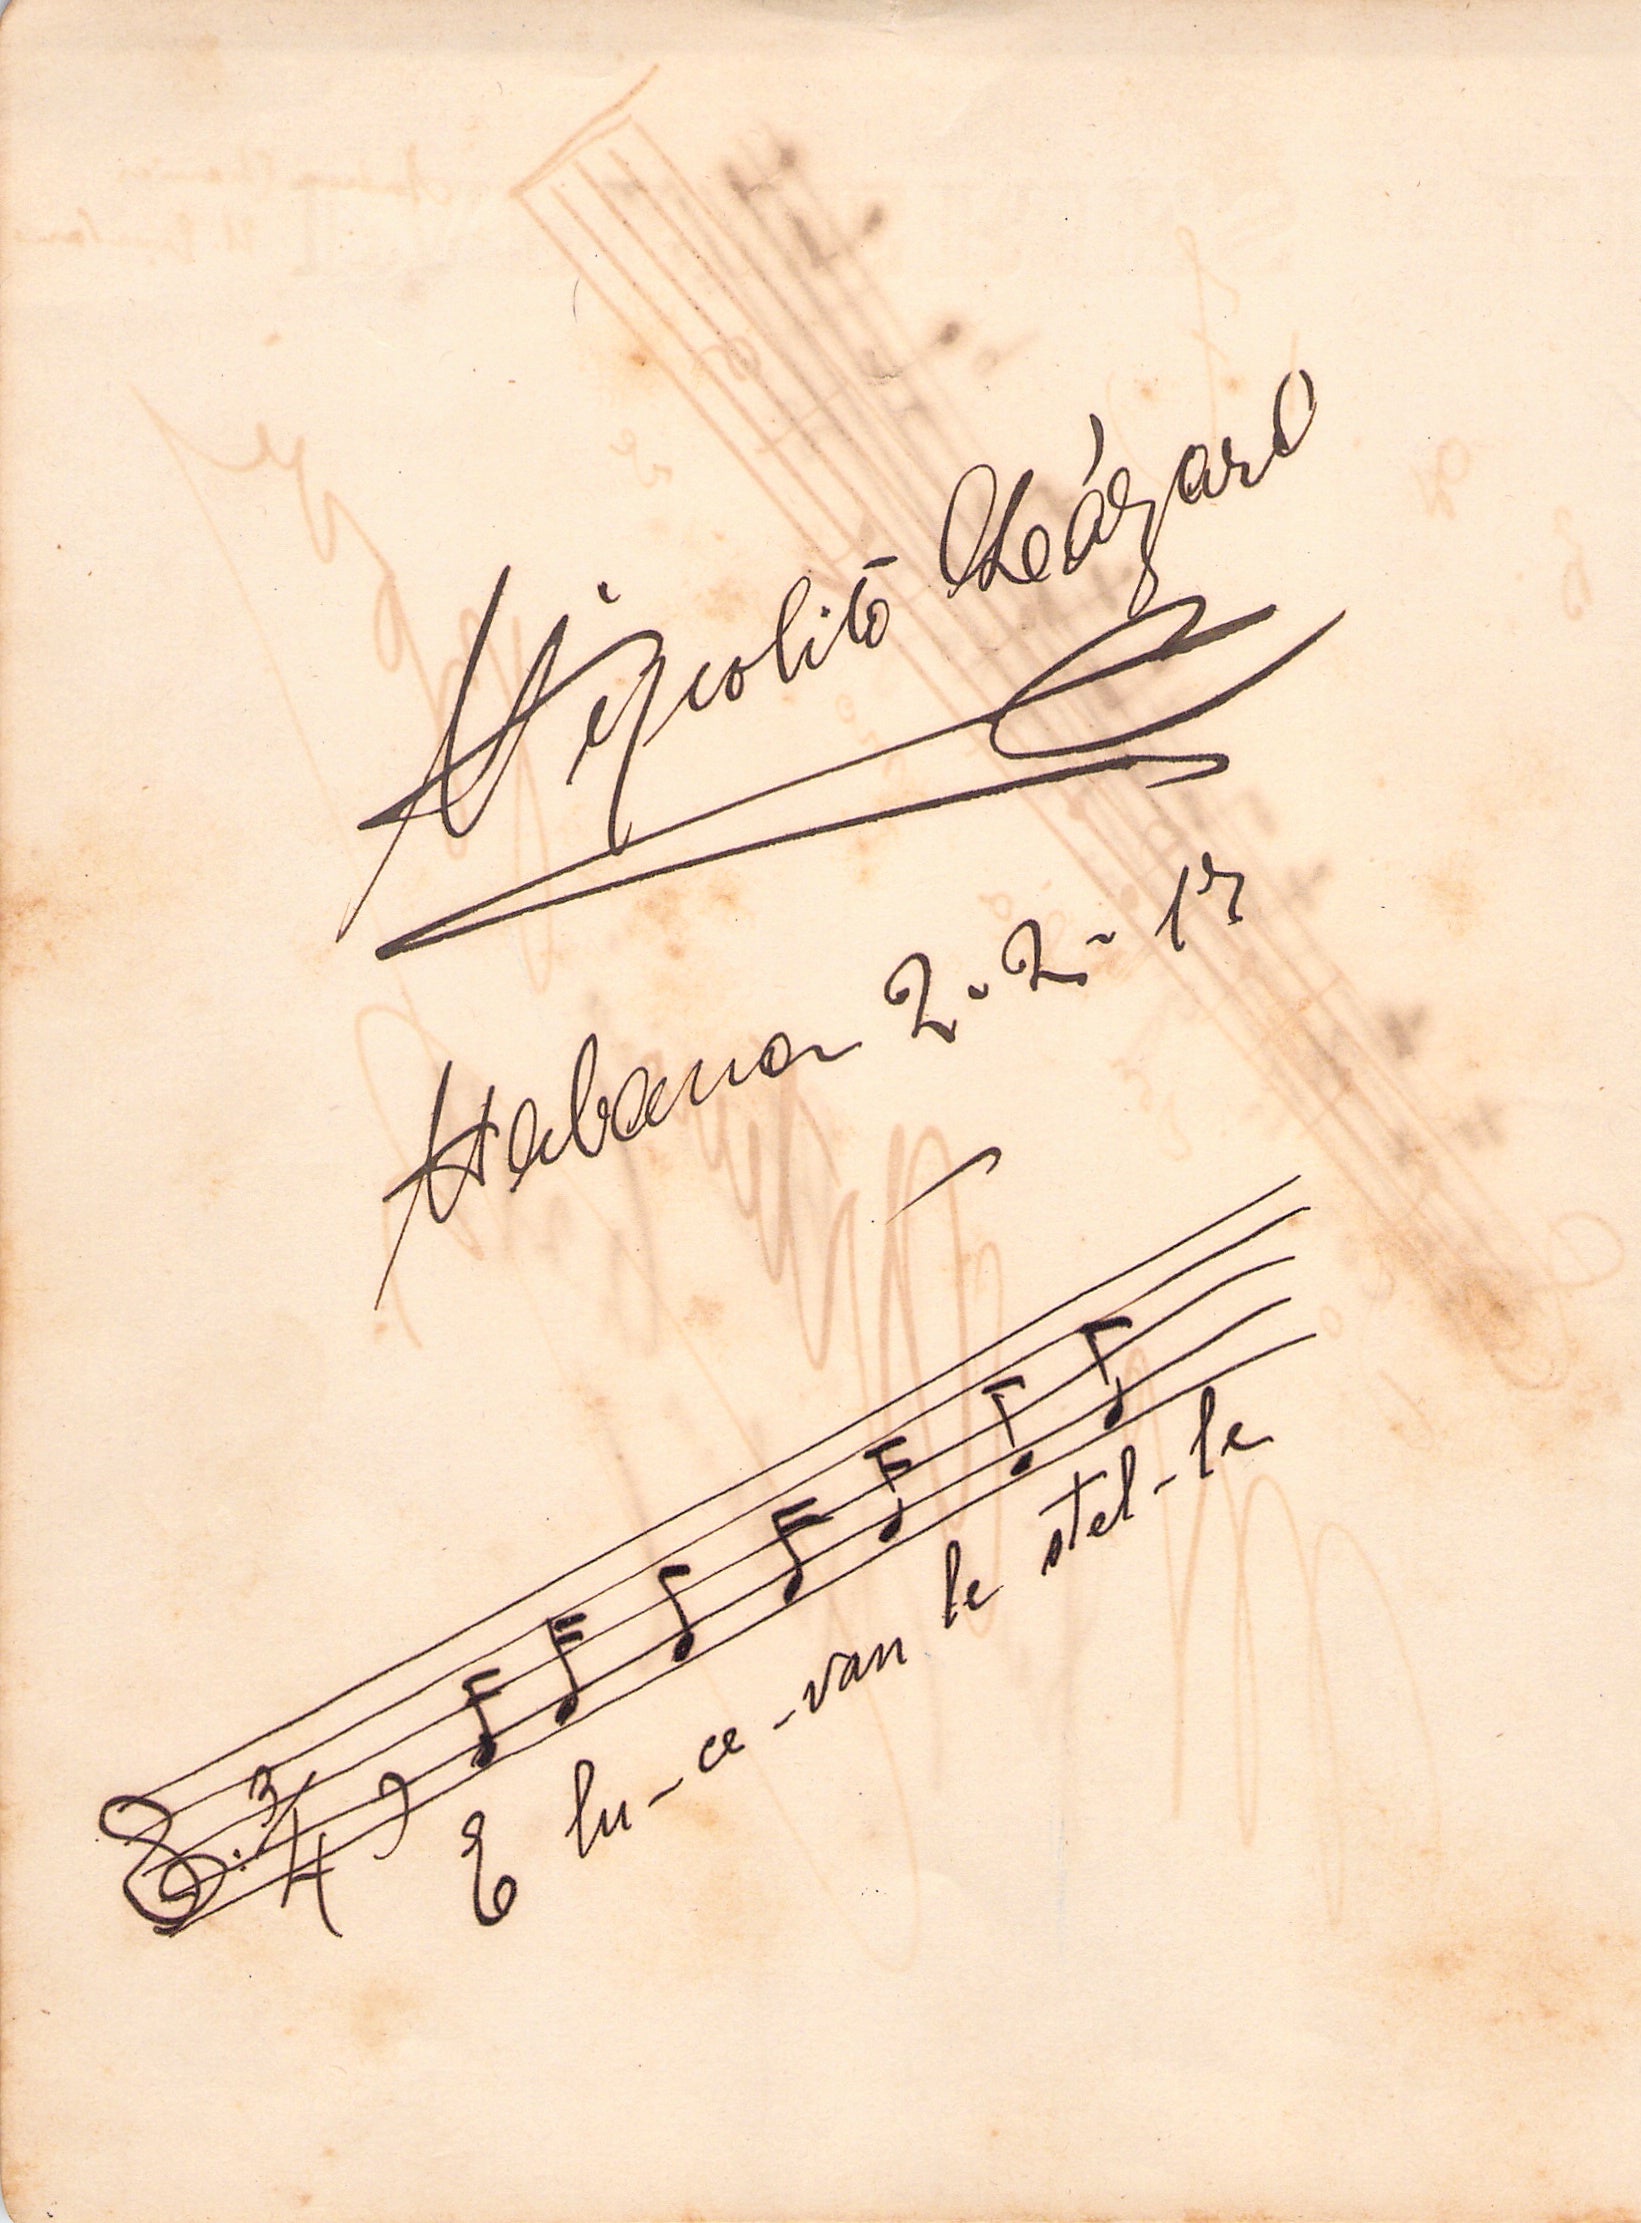 Hipólito Lázaro
Habana 2-2-17
3/4
E lu-ce-van le stel-le